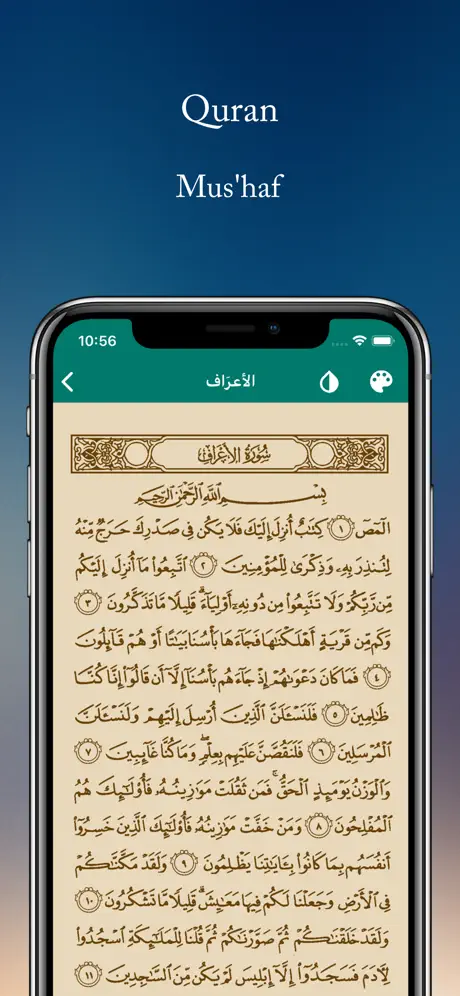 Quran
Mus'haf
10:56
الأعرَاف
سُورَةُ الأَعْرَافِ
بِسْمِ اللَّهِ الرَّحْمَٰنِ الرَّحِيمِ
الٓمٓصٓ ١ كِتَٰبٌ أُنزِلَ إِلَيْكَ فَلَا يَكُن فِى صَدْرِكَ حَرَجٌ مِّنْهُ
لِتُنذِرَ بِهِۦ وَذِكْرَىٰ لِلْمُؤْمِنِينَ ٢ ٱتَّبِعُوا۟ مَآ أُنزِلَ إِلَيْكُم
مِّن رَّبِّكُمْ وَلَا تَتَّبِعُوا۟ مِن دُونِهِۦٓ أَوْلِيَآءَ ۗ قَلِيلًا مَّا تَذَكَّرُونَ ٣
وَكَم مِّن قَرْيَةٍ أَهْلَكْنَٰهَا فَجَآءَهَا بَأْسُنَا بَيَٰتًا أَوْ هُمْ قَآئِلُونَ
٤ فَمَا كَانَ دَعْوَىٰهُمْ إِذْ جَآءَهُم بَأْسُنَآ إِلَّآ أَن قَالُوٓا۟ إِنَّا كُنَّا
ظَٰلِمِينَ ٥ فَلَنَسْـَٔلَنَّ ٱلَّذِينَ أُرْسِلَ إِلَيْهِمْ وَلَنَسْـَٔلَنَّ
ٱلْمُرْسَلِينَ ٦ فَلَنَقُصَّنَّ عَلَيْهِم بِعِلْمٍ ۖ وَمَا كُنَّا غَآئِبِينَ ٧
وَٱلْوَزْنُ يَوْمَئِذٍ ٱلْحَقُّ ۚ فَمَن ثَقُلَتْ مَوَٰزِينُهُۥ فَأُو۟لَٰٓئِكَ هُمُ
ٱلْمُفْلِحُونَ ٨ وَمَنْ خَفَّتْ مَوَٰزِينُهُۥ فَأُو۟لَٰٓئِكَ ٱلَّذِينَ خَسِرُوٓا۟
أَنفُسَهُم بِمَا كَانُوا۟ بِـَٔايَٰتِنَا يَظْلِمُونَ ٩ وَلَقَدْ مَكَّنَّٰكُمْ
فِى ٱلْأَرْضِ وَجَعَلْنَا لَكُمْ فِيهَا مَعَٰيِشَ ۗ قَلِيلًا مَّا تَشْكُرُونَ ١٠
وَلَقَدْ خَلَقْنَٰكُمْ ثُمَّ صَوَّرْنَٰكُمْ ثُمَّ قُلْنَا لِلْمَلَٰٓئِكَةِ ٱسْجُدُوا۟
لِـَٔادَمَ فَسَجَدُوٓا۟ إِلَّآ إِبْلِيسَ لَمْ يَكُن مِّنَ ٱلسَّٰجِدِينَ ١١